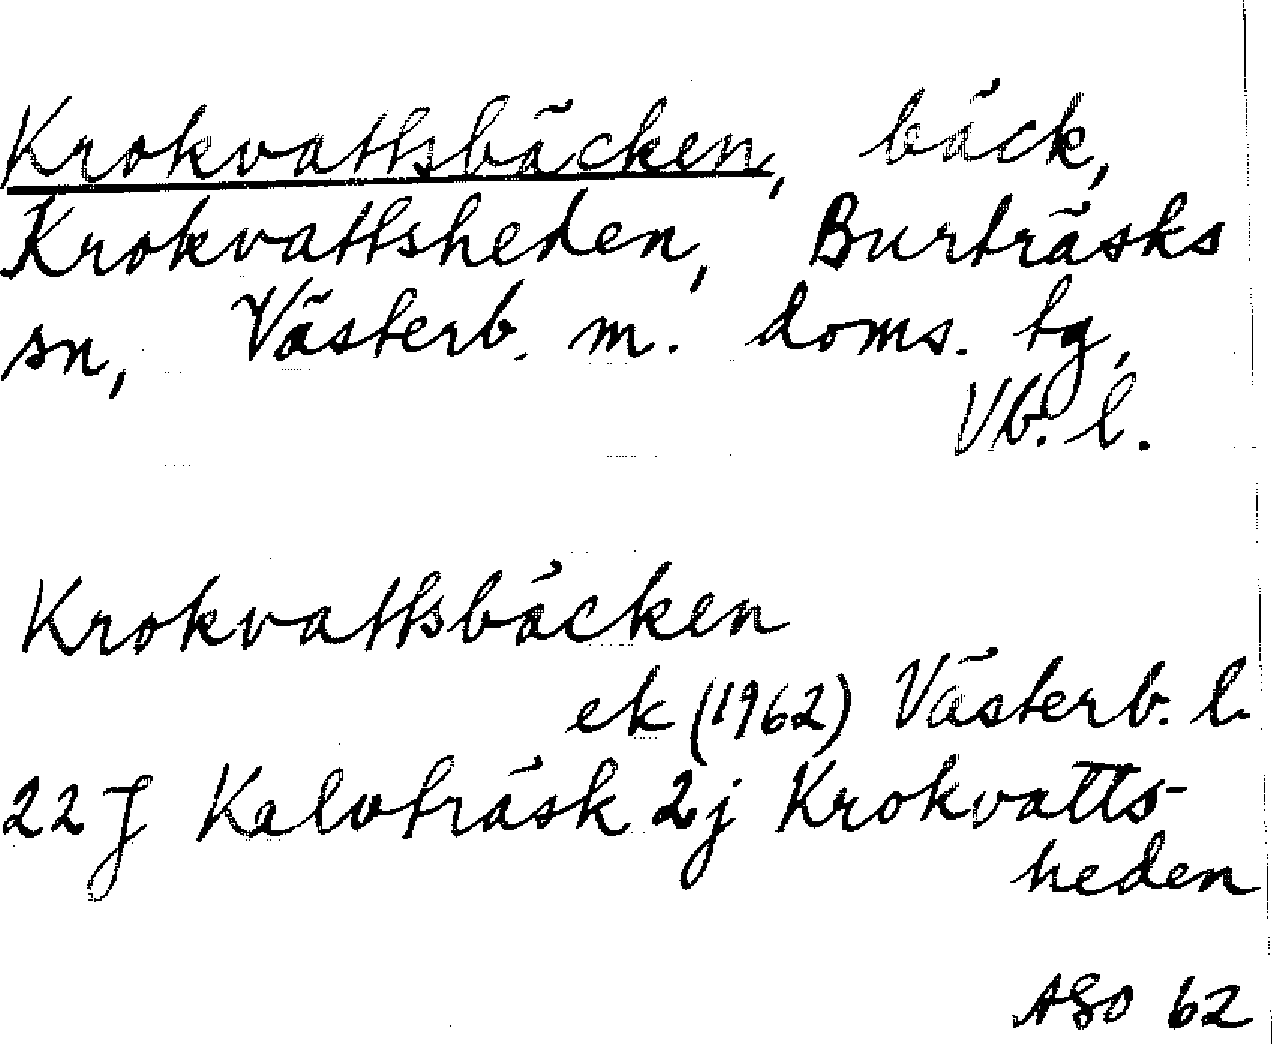 Krokvattsbäcken, bäck,
Krokvattsheden, Burträsks
sn, Västerb. m. doms. tg,
Vb. l.
Krokvattsbäcken
ek (1962) Västerb. l.
22 J Kalvträsk 2j Krokvatts-
heden
ASO 62